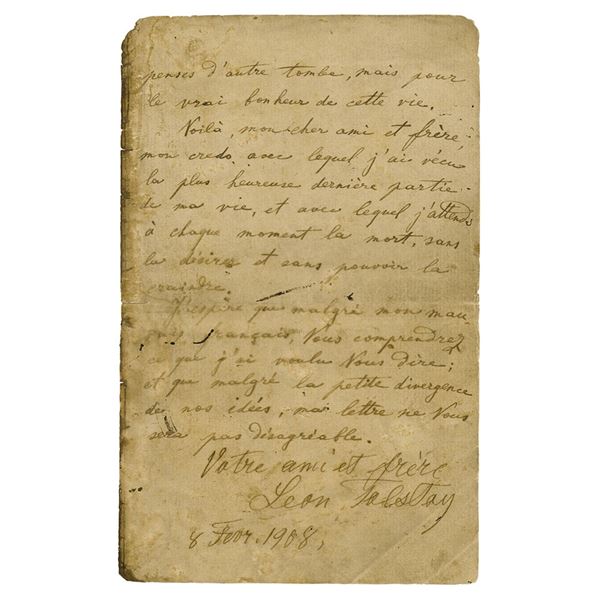 penses d'autre tombe, mais pour
le vrai bonheur de cette vie.
Voilà, mon cher ami et frère,
mon credo avec lequel j'ai vécu
la plus heureuse dernière partie
de ma vie, et avec lequel j'attends
à chaque moment la mort, sans
la désirer et sans pouvoir la
craindre.
J'espère que malgré mon mau-
vais français, Vous comprendrez
ce que j'ai voulu Vous dire;
et que malgré la petite divergence
de nos idées, ma lettre ne Vous
sera pas désagréable.
Votre ami et frère
Leon Tolstoy
8 Fevr. 1908,